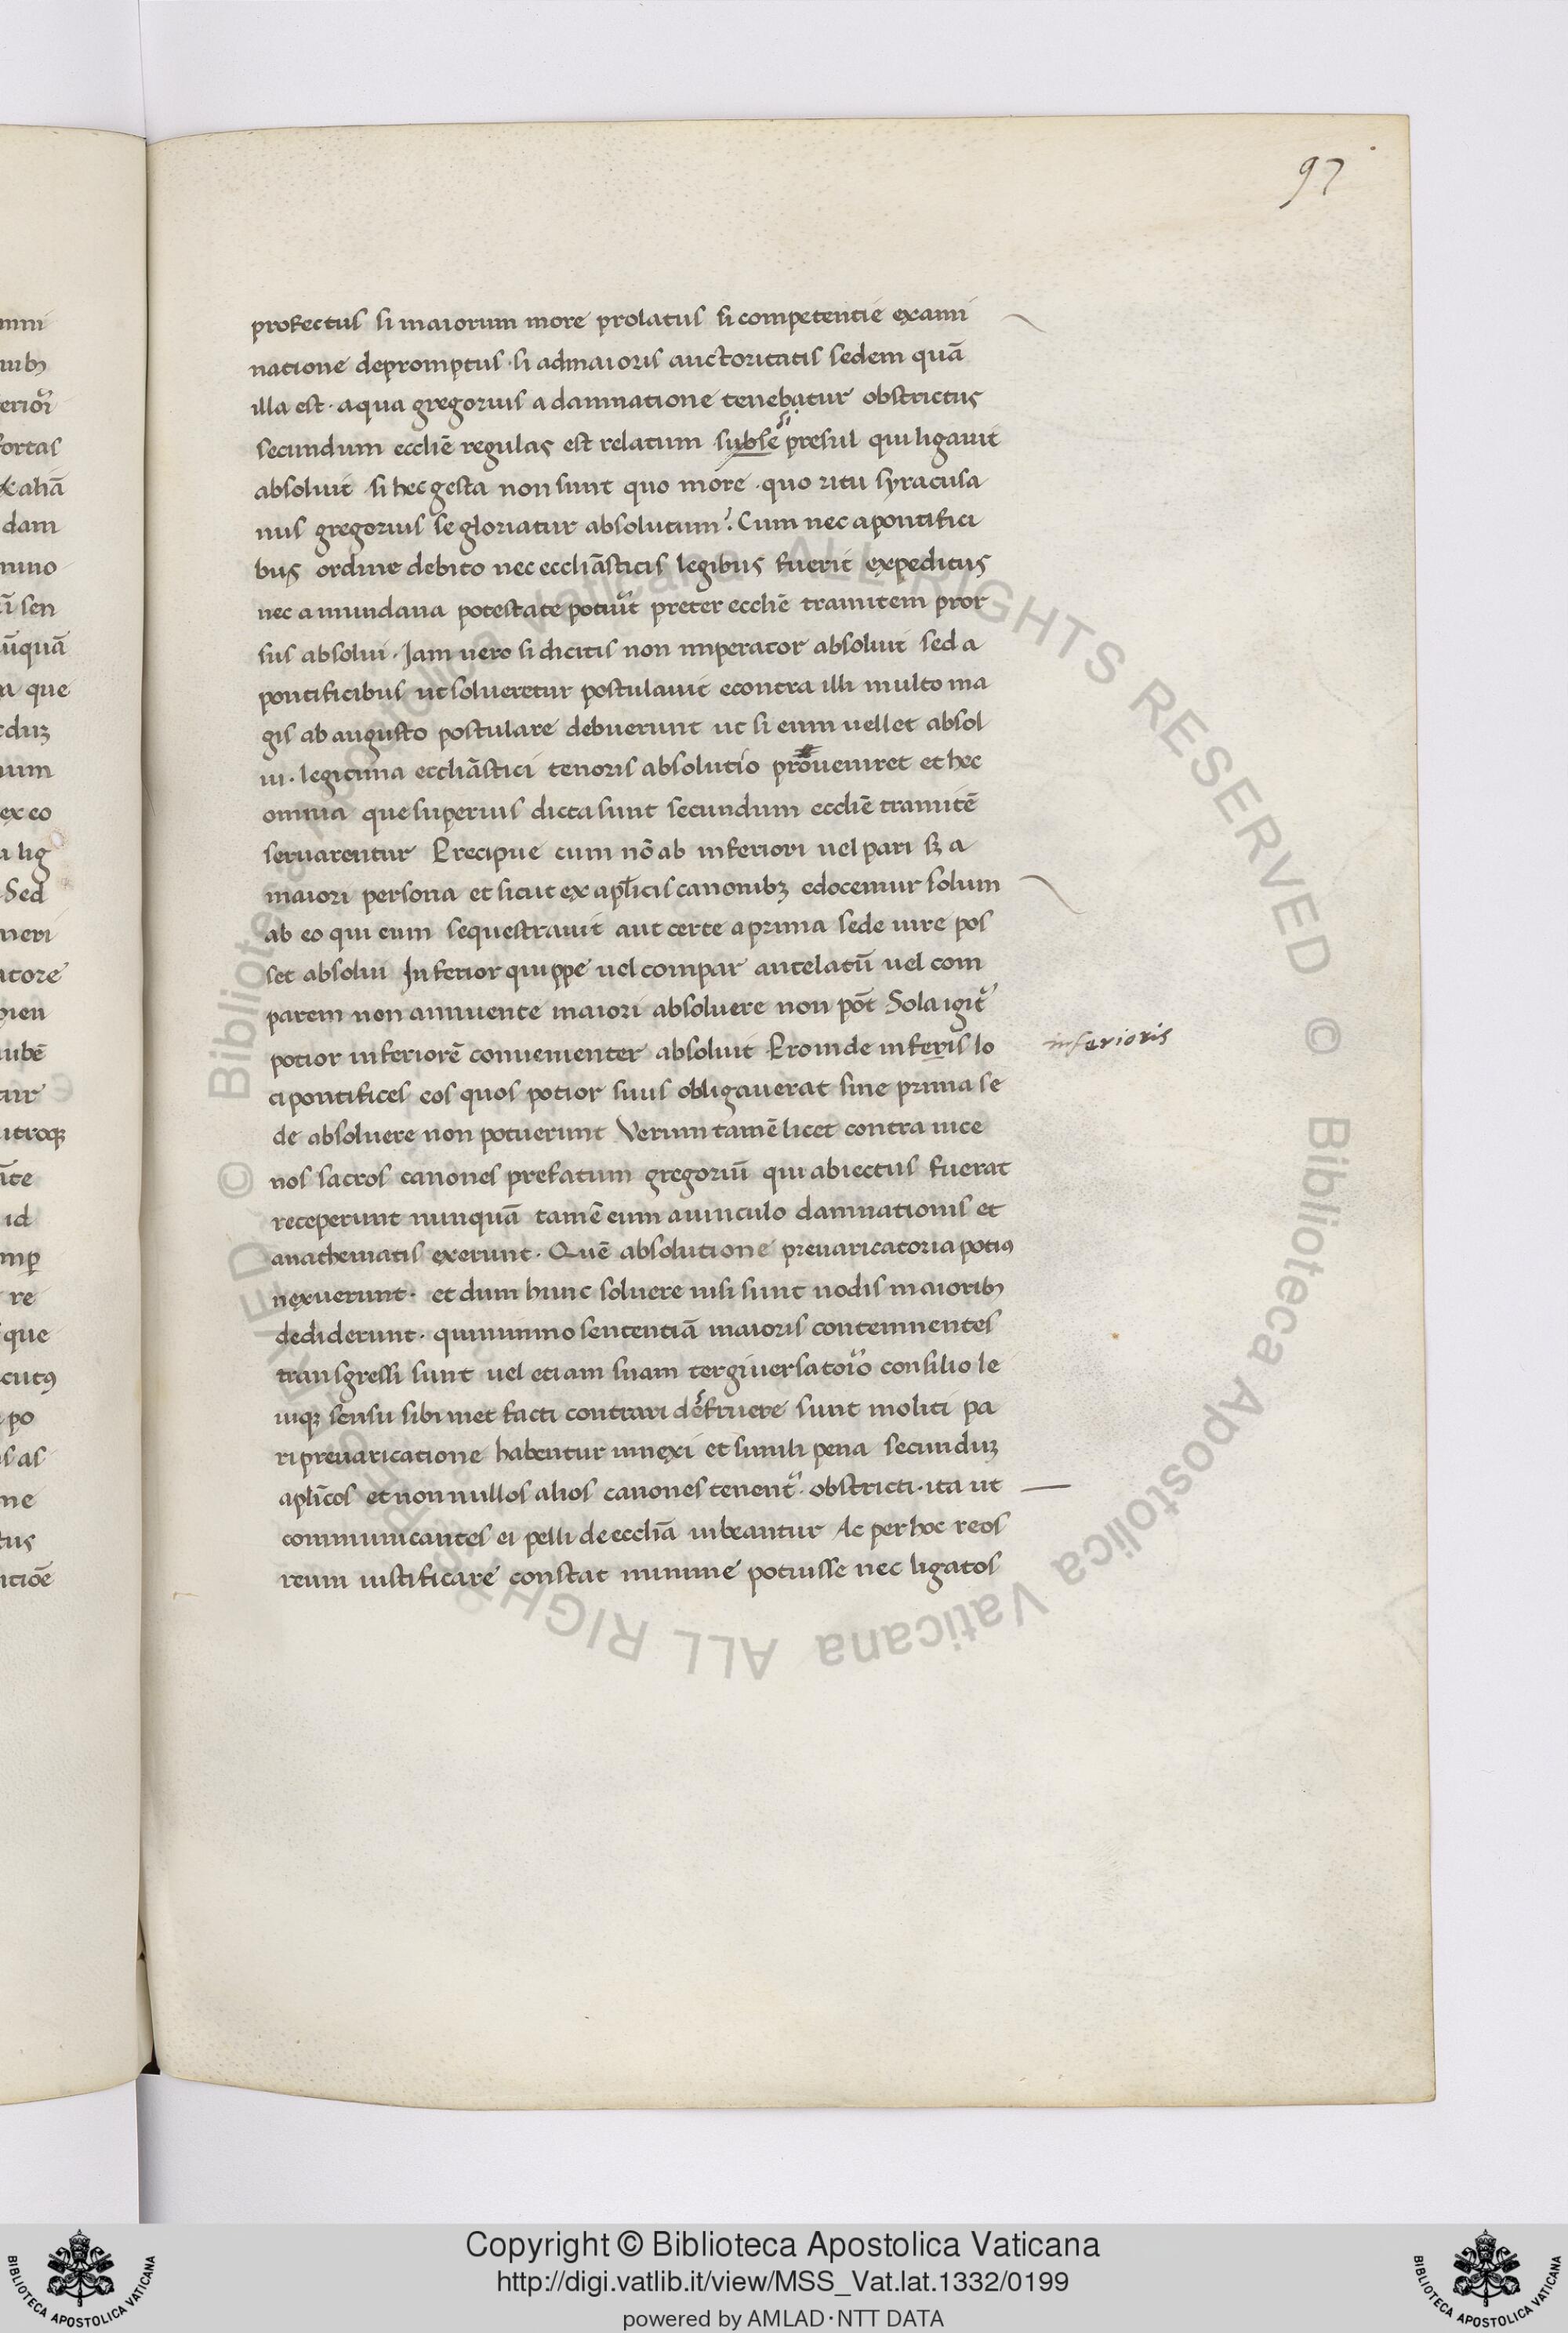 97
profectus si maiorum more prolatus si competentie exami
natione depromptus · si ad maioris auctoritatis sedem quā
illa est · a qua gregorius a damnatione tenebatur obstrictus
si
secundum eccliē regulas est relatum subsē presul qui ligauit
absoluit si hec gesta non sunt quo more · quo ritu syracusa
nus gregorius se gloriatur absolutum? Cum nec a pontifici
bus ordine debito nec eccliāsticis legibus fuerit expeditus
nec a mundana potestate potiūt preter eccliē tramitem pror
sus absolui · Jam uero si dicitis non imperator absoluit sed a
pontificibus ut solueretur postulauit econtra illi multo ma
gis ab augusto postulare debuerunt ut si eum uellet absol
ui · legitima eccliāstici tenoris absolutio proueniret et hec
omnia que superius dicta sunt secundum eccliē tramitē
seruarentur Precipue cum nō ab inferiori uel pari sꝫ a
maiori persona et sicut ex apl̄icis canonibꝫ edocemur solum
ab eo qui eum sequestrauit aut certe a prima sede iure pos
set absolui Inferior quippe uel compar antelatū uel com
parem non annuente maiori absoluere non pōt Sola igit᷑
potior inferiorē conuenienter absoluit Proinde inferis lo
inferioris
ci pontifices eos quos potior suus obligauerat sine prima se
de absoluere non potuerunt Verum tamē licet contra nice
nos sacros canones prefatum gregoriū qui abiectus fuerat
receperunt nunquā tamē eum a uinculo damnationis et
anathematis exerunt · Quē absolutione preuaricatoria potiꝰ
nexuerunt · et dum hunc soluere nisi sunt nodis maioribꝫ
dediderunt · quinimmo sententiā maioris contemnentes
transgressi sunt uel etiam suam tergiuersatorᵒ consilio le
uiqꝫ sensu sibimet facti contrari dēstruere sunt moliti pa
ri preuaricatione habentur innexi et simili pena secunduꝫ
apl̄icos et nonnullos alios canones tenent᷑ · obstricti · ita ut
communicantes ei pelli de eccliā iubeantur Ac per hoc reos
reum iustificare constat minime potuisse nec ligatos
Copyright © Biblioteca Apostolica Vaticana
http://digi.vatlib.it/view/MSS_Vat.lat.1332/0199
powered by AMLAD·NTT DATA